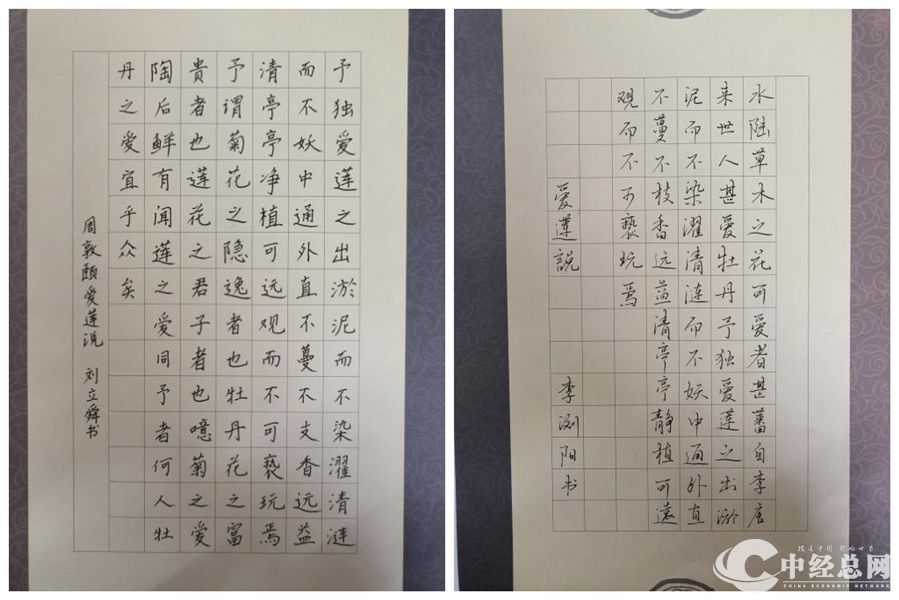 予独爱莲之出淤泥而不染濯清涟
而不妖中通外直不蔓不支香远益
清亭亭净植可远观而不可亵玩焉
予谓菊花之隐逸者也牡丹花之富
贵者也莲花之君子者也噫菊之爱
陶后鲜有闻莲之爱同予者何人牡
丹之爱宜乎众矣
周敦颐爱莲说 刘立舜书
水陆草木之花可爱者甚蕃自李唐
来世人甚爱牡丹予独爱莲之出淤
泥而不染濯清涟而不妖中通外直
不蔓不枝香远益清亭亭静植可遠
观而不可亵玩焉
爱莲説 李浏阳书
中经总网
CHINA ECONOMIC NETWORK